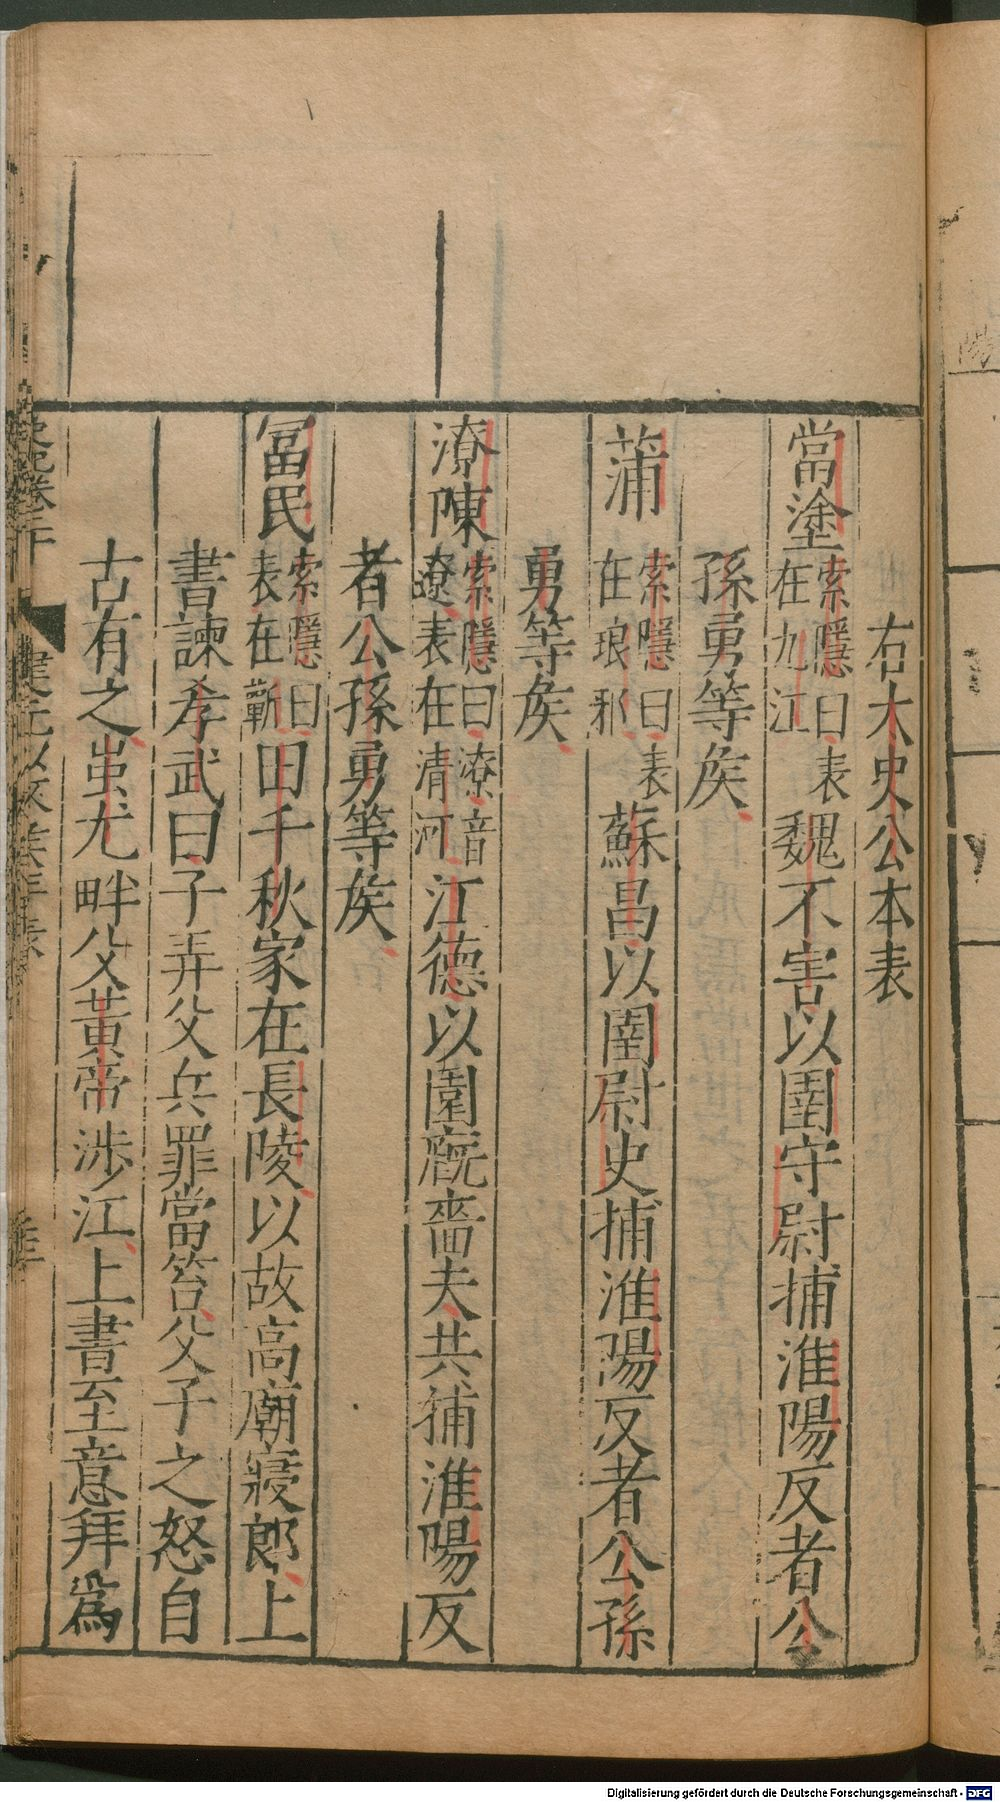 右太史公本表
當塗索隱曰表在九江魏不害以圉守尉捕淮陽反者公
孫勇等矦
蒲索隱曰表在琅邪蘇昌以圉尉史捕淮陽反者公孫
勇等矦
潦陳索隱曰潦音遼表在清河江德以園廐嗇夫共捕淮陽反
者公孫勇等矦
富民索隱曰表在蘄田千秋家在長陵以故高廟寢郎上
書諫孝武曰子弄父兵罪當笞父子之怒自
古有之蚩尤畔父黃帝涉江上書至意拜爲
史記卷二十
Digitalisierung gefördert durch die Deutsche Forschungsgemeinschaft - DFG